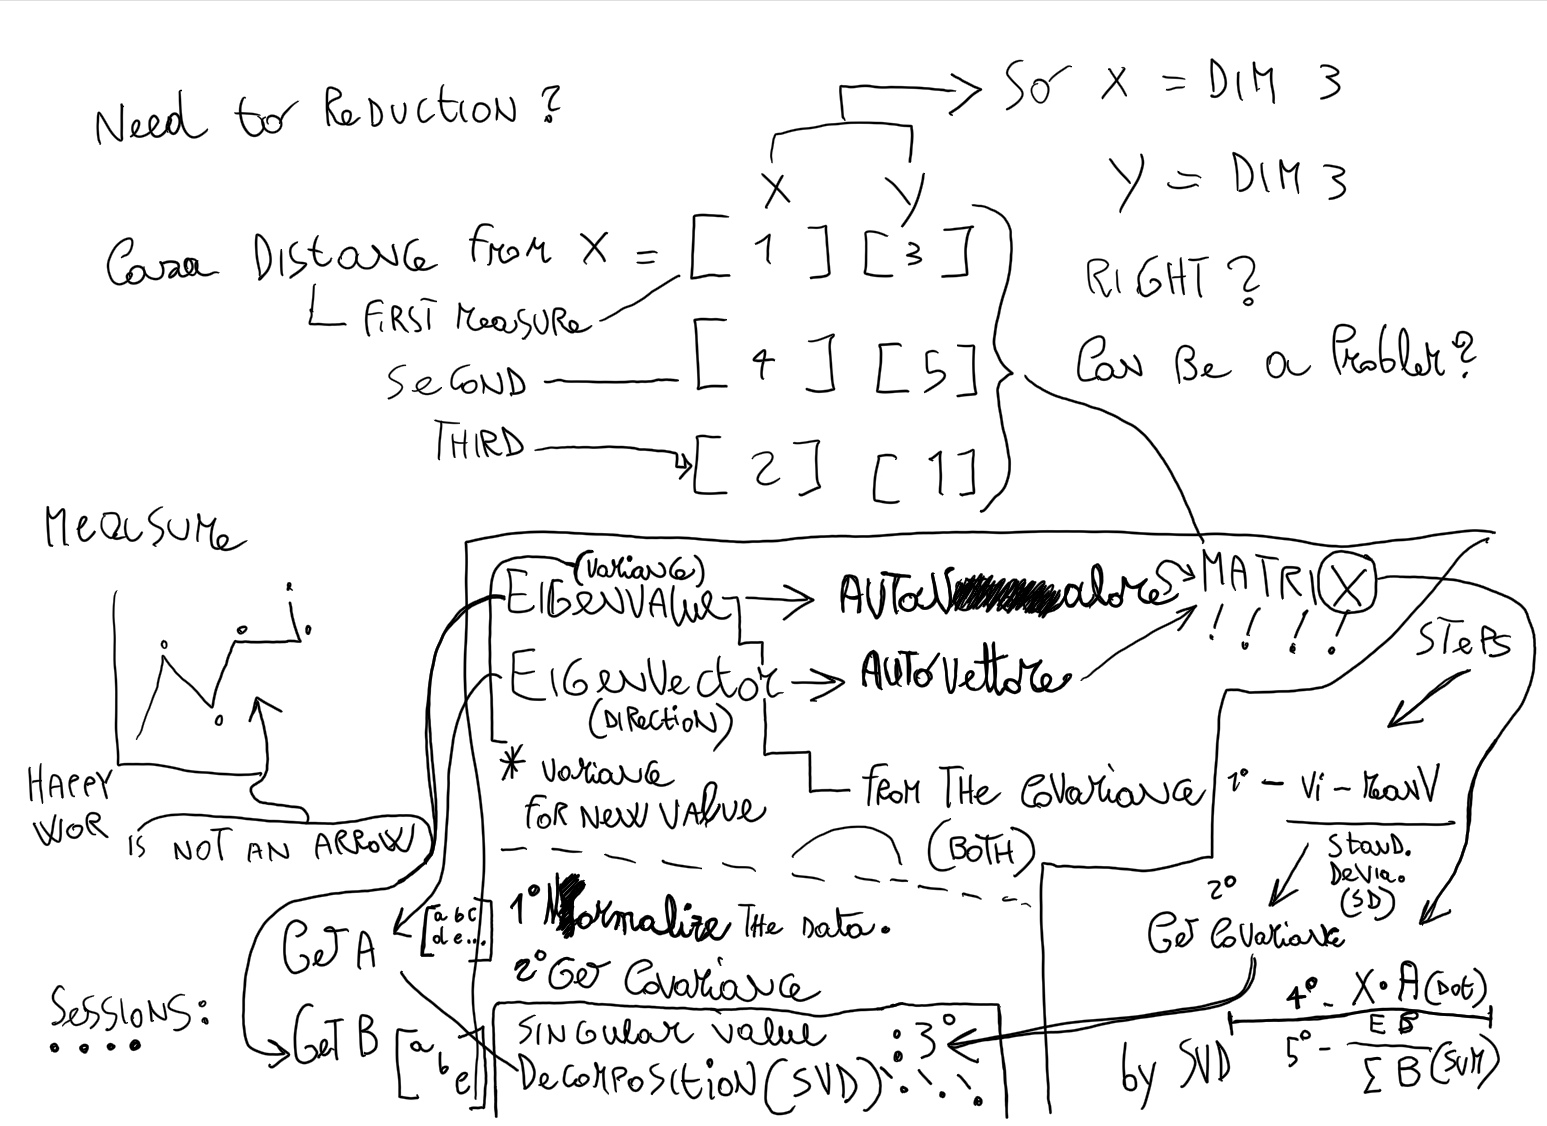 Need to Reduction?
So X = DIM 3
Y = DIM 3
RIGHT?
Can Be a Problem?
X Y
Casa Distance from X = [ 1 ] [ 3 ]
FIRST Measure
Second [ 4 ] [ 5 ]
THIRD [ 2 ] [ 1 ]
Measure
HAPPY
WOR
IS NOT AN ARROW
(Variance)
EIGENVALUE AUTOValore MATRIX
! ! ! !
EIGENVector AUTOVettore
(DIRection)
* Variance
FOR NEW VALUE
FROM THE COVariance
(BOTH)
STEPS
1° - Vi - MeanV
Stand.
Devia.
(SD)
2°
Get Covariance
1° Normalize THE DATA.
2° Get Covariance
SINGULAR Value : 3°
DecomPOSition (SVD)
Get A [a b c
d e...]
Get B [a
b
e]
Sessions:
4° - X • A (Dot)
by SVD
5° - E B
Σ B (SUM)